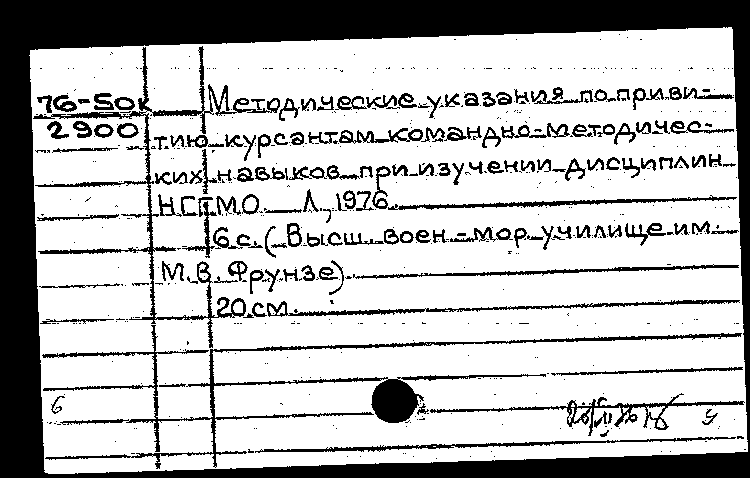 76-50к Методические указания по приви-
2900 тию курсантам командно-методичес-
ких навыков при изучении дисциплин
Л, 1976.
6 с. (Высш. воен.-мор. училище им.
М.В. Фрунзе).
20 см.
6